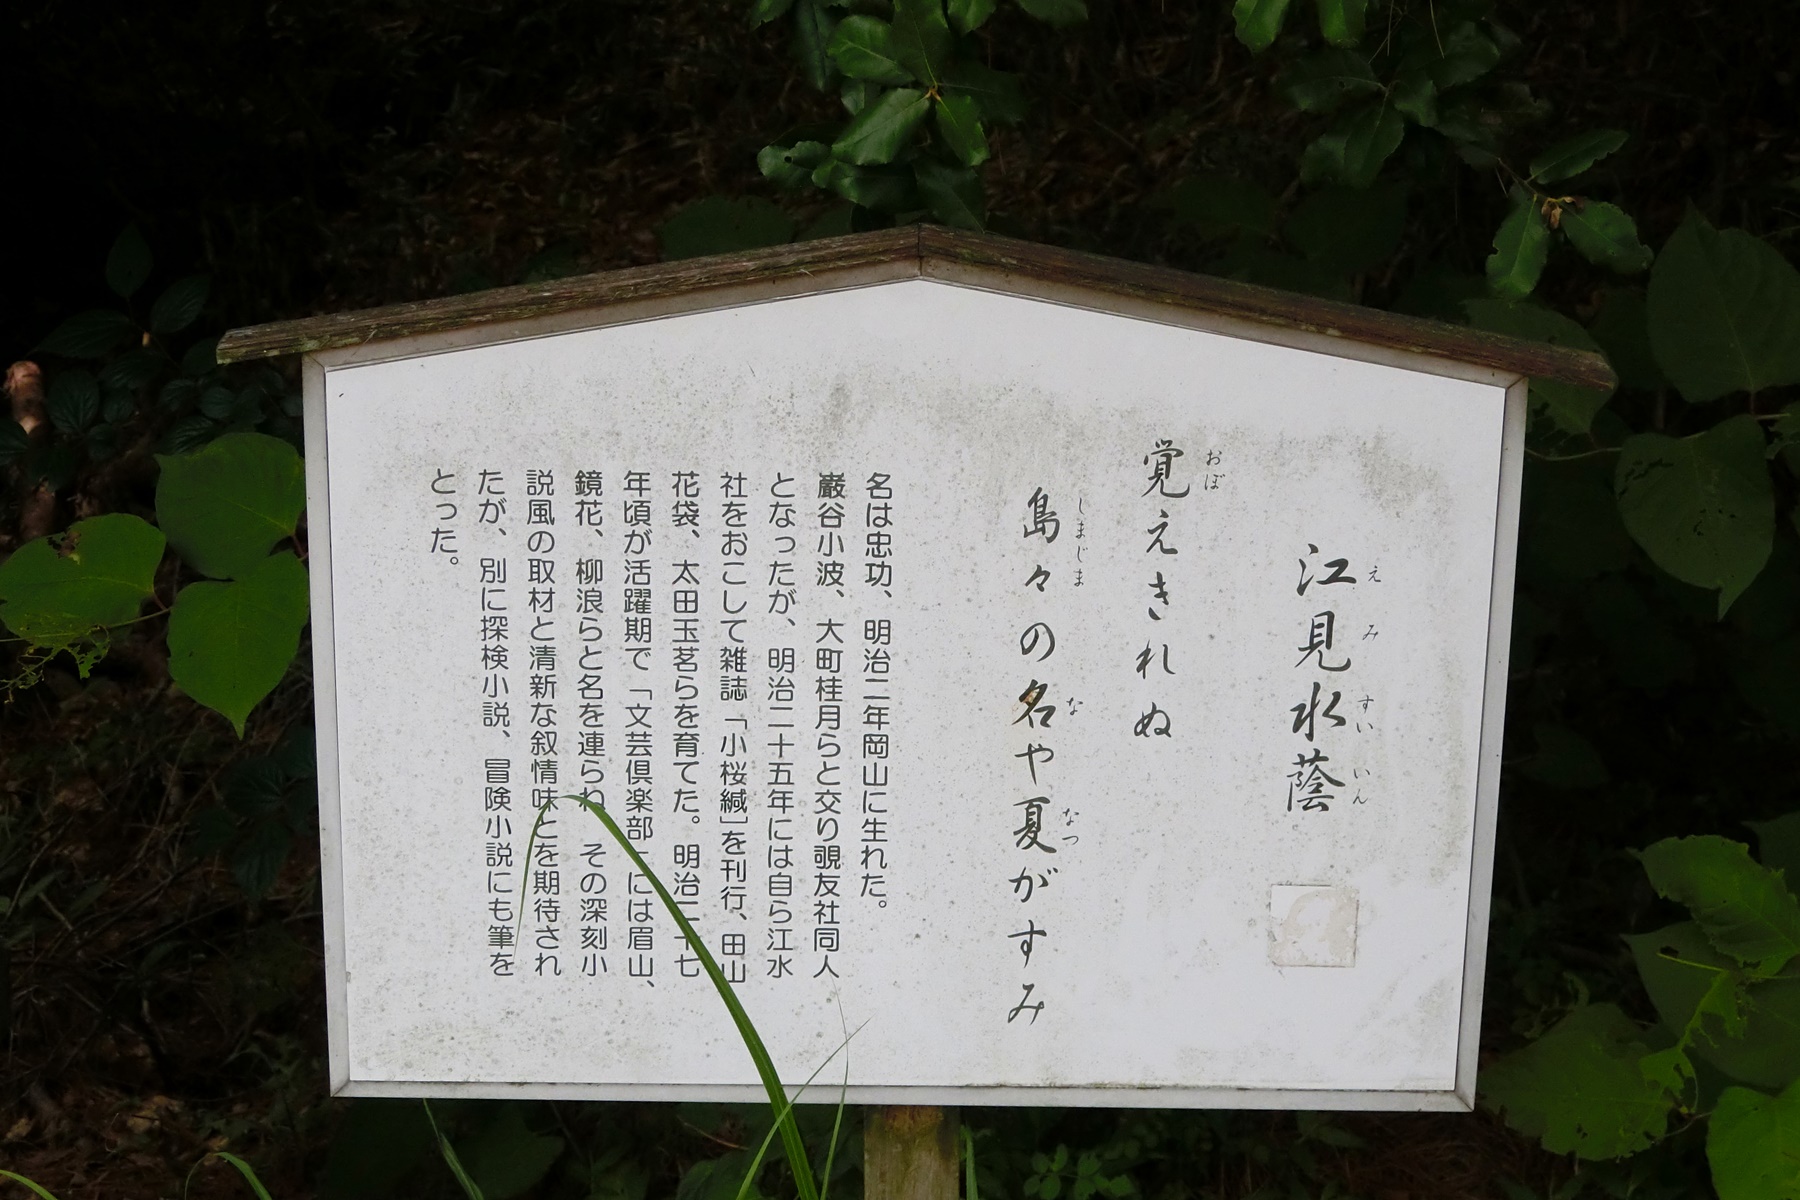 江見水蔭
えみすいいん
覚えきれぬ
おぼ
島々の名や夏がすみ
しまじま な なつ
名は忠功、明治二年岡山に生れた。
巌谷小波、大町桂月らと交り硯友社同人
となったが、明治二十五年には自ら江水
社をおこして雑誌「小桜縅」を刊行、田山
花袋、太田玉茗らを育てた。明治二十七
年頃が活躍期で「文芸倶楽部」には眉山、
鏡花、柳浪らと名を連らね、その深刻小
説風の取材と清新な叙情味とを期待され
たが、別に探検小説、冒険小説にも筆を
とった。